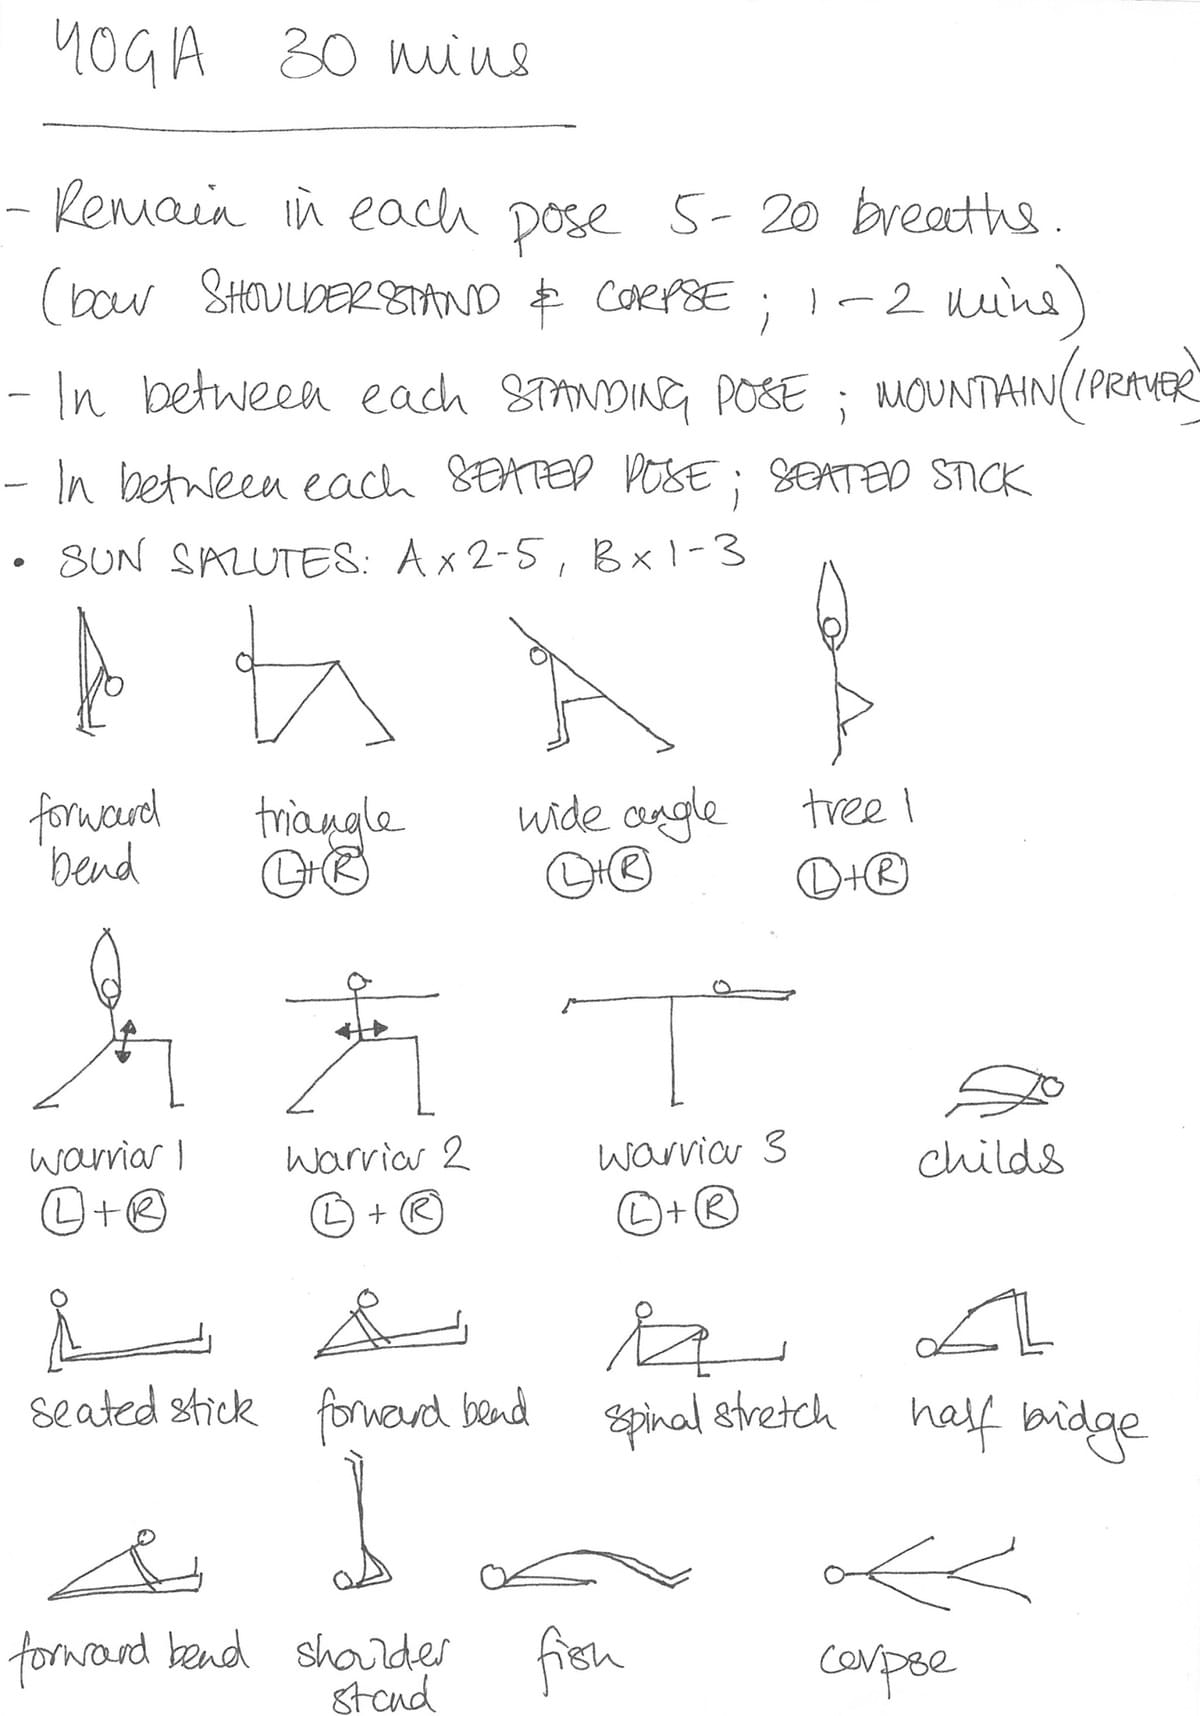 YOGA 30 mins
- Remain in each pose 5-20 breaths.
(bar SHOULDERSTAND & CORPSE; 1-2 mins)
- In between each STANDING POSE; MOUNTAIN(/PRAYER)
- In between each SEATED POSE; SEATED STICK
• SUN SALUTES: A x 2-5, B x 1-3
forward bend
triangle
L+R
wide angle
L+R
tree 1
L+R
warrior 1
L+R
warrior 2
L+R
warrior 3
L+R
childs
seated stick
forward bend
spinal stretch
half bridge
forward bend
shoulder
stand
fish
corpse